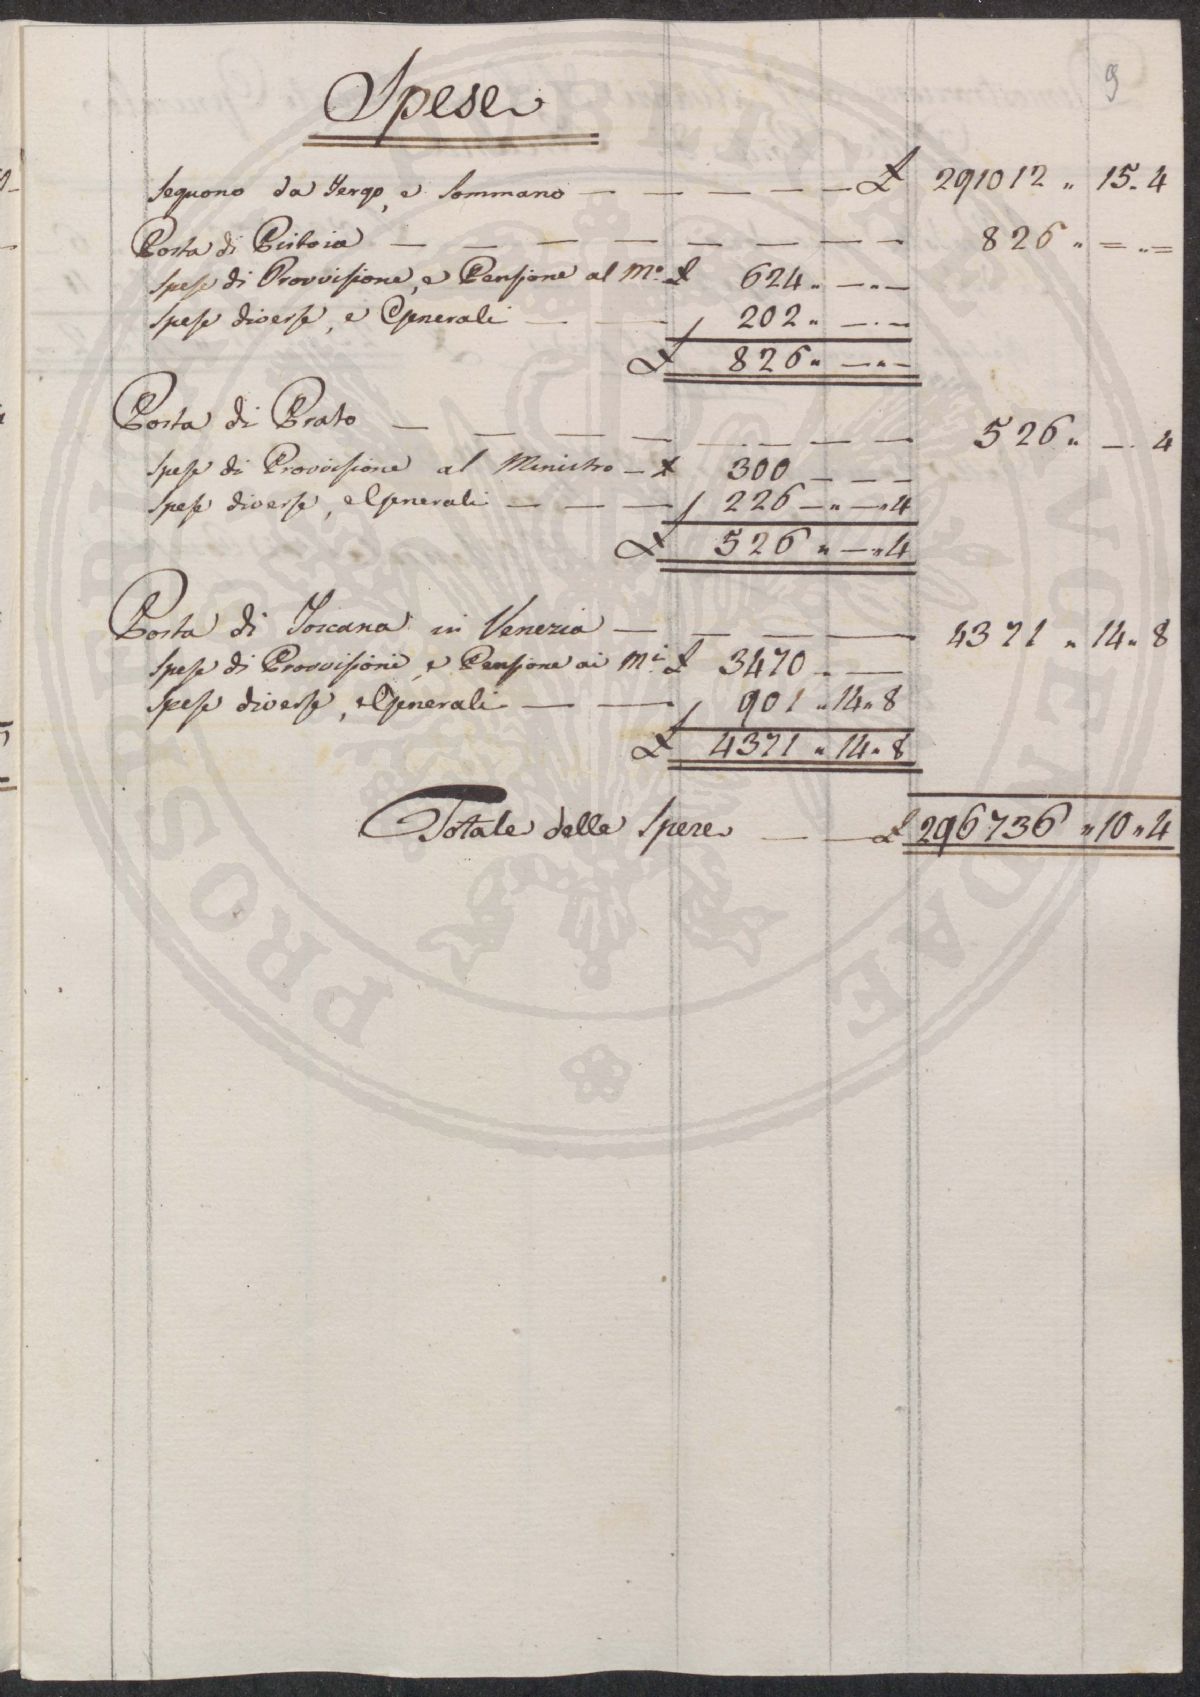 9
Spese
Seguono da Tergo, e Sommano — — — — — — £ 291012 „ 15. 4
Posta di Pistoia — — — — — — — — 826 „ = „ =
Spese di Provvisione, e Pensione al M.o £ 624 „ — „ —
Spese diverse, e Generali — — 202 „ — „ —
£ 826 „ — „ —
Posta di Prato — — — — — — — — 526 „ — . 4
Spese di Provvisione al Ministro — £ 300 — — —
Spese diverse, e Generali — — — 226 — „ — „ 4
£ 526 „ — „ 4
Posta di Toscana in Venezia — — — — 4371 „ 14 „ 8
Spese di Provvisioni, e Pensione ai M.i £ 3470 „ —
Spese diverse, e Generali — — 901 „ 14 „ 8
£ 4371 „ 14 „ 8
Totale delle Spese — — £ 296736 „ 10 „ 4